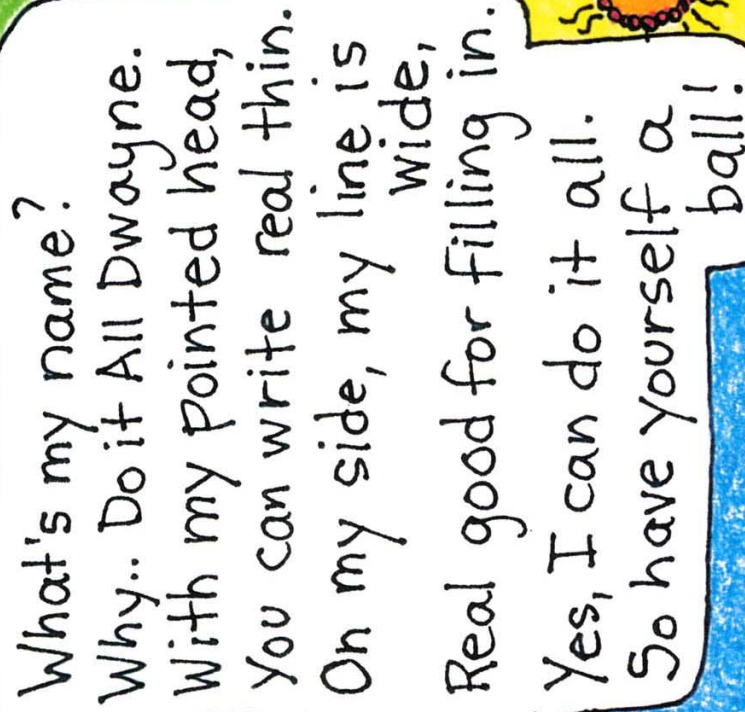 What's my name?
Why.. Do it All Dwayne.
With my pointed head,
You can write real thin.
On my side, my line is
wide,
Real good for filling in.
Yes, I can do it all.
So have yourself a
ball!